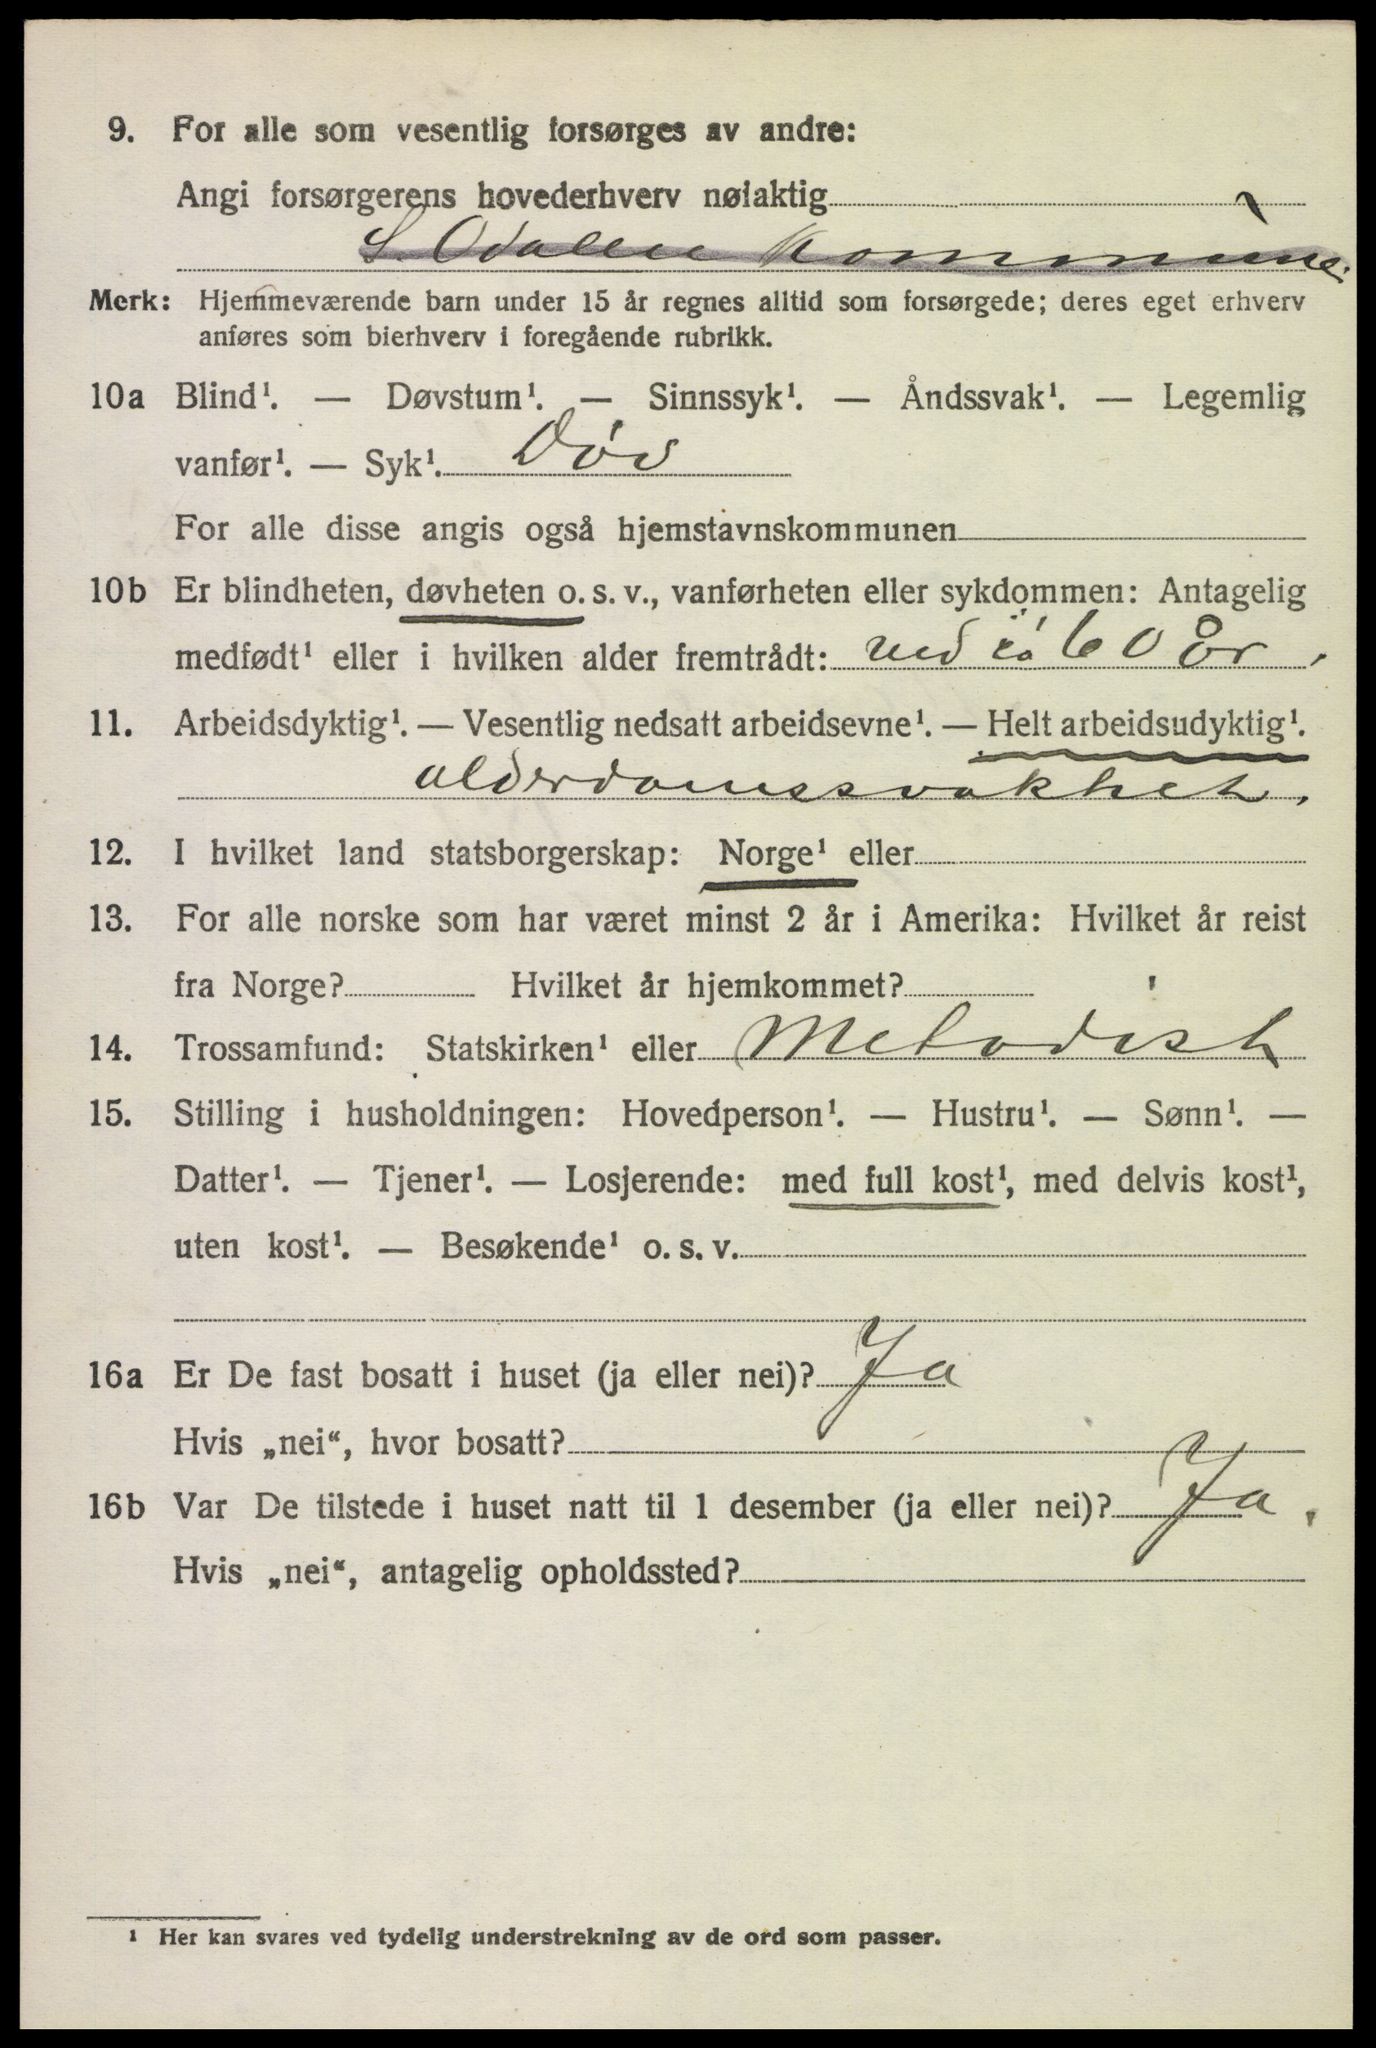 9. For alle som vesentlig forsørges av andre:
Angi forsørgerens hovederhverv nøiaktig
S. Odalen Kommune.
Merk: Hjemmeværende barn under 15 år regnes alltid som forsørgede; deres eget erhverv
anføres som bierhverv i foregående rubrikk.
10a Blind¹. — Døvstum¹. — Sinnssyk¹. — Åndssvak¹. — Legemlig
vanfør¹. — Syk¹. Døv
For alle disse angis også hjemstavnskommunen
10b Er blindheten, døvheten o. s. v., vanførheten eller sykdommen: Antagelig
medfødt¹ eller i hvilken alder fremtrådt: ved ca 60 år.
11. Arbeidsdyktig¹. — Vesentlig nedsatt arbeidsevne¹. — Helt arbeidsudyktig¹.
alderdomssvakhet.
12. I hvilket land statsborgerskap: Norge¹ eller
13. For alle norske som har været minst 2 år i Amerika: Hvilket år reist
fra Norge? Hvilket år hjemkommet?
14. Trossamfund: Statskirken¹ eller Metodist
15. Stilling i husholdningen: Hovedperson¹. — Hustru¹. — Sønn¹. —
Datter¹. — Tjener¹. — Losjerende: med full kost¹, med delvis kost¹,
uten kost¹. — Besøkende¹ o. s. v.
16a Er De fast bosatt i huset (ja eller nei)? Ja
Hvis „nei“, hvor bosatt?
16b Var De tilstede i huset natt til 1 desember (ja eller nei)? Ja.
Hvis „nei“, antagelig opholdssted?
¹ Her kan svares ved tydelig understrekning av de ord som passer.